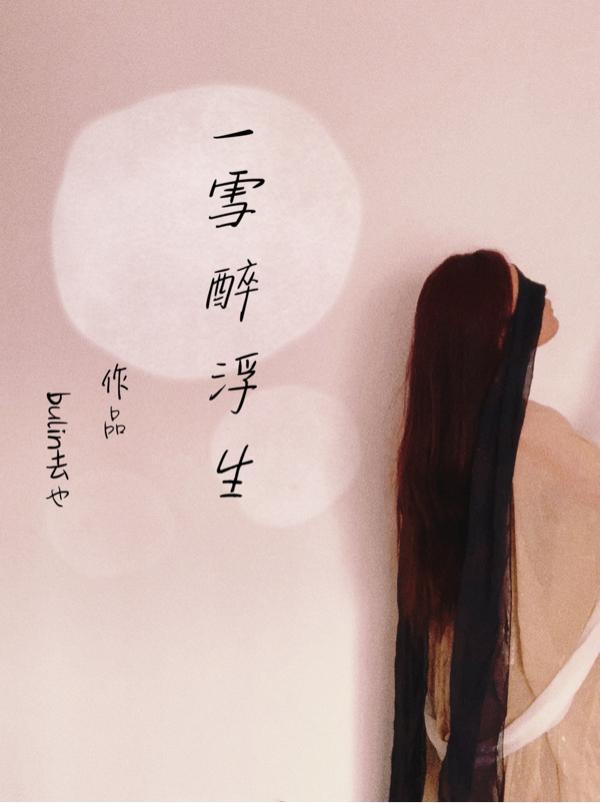 一雪醉浮生
作品
bulin去也